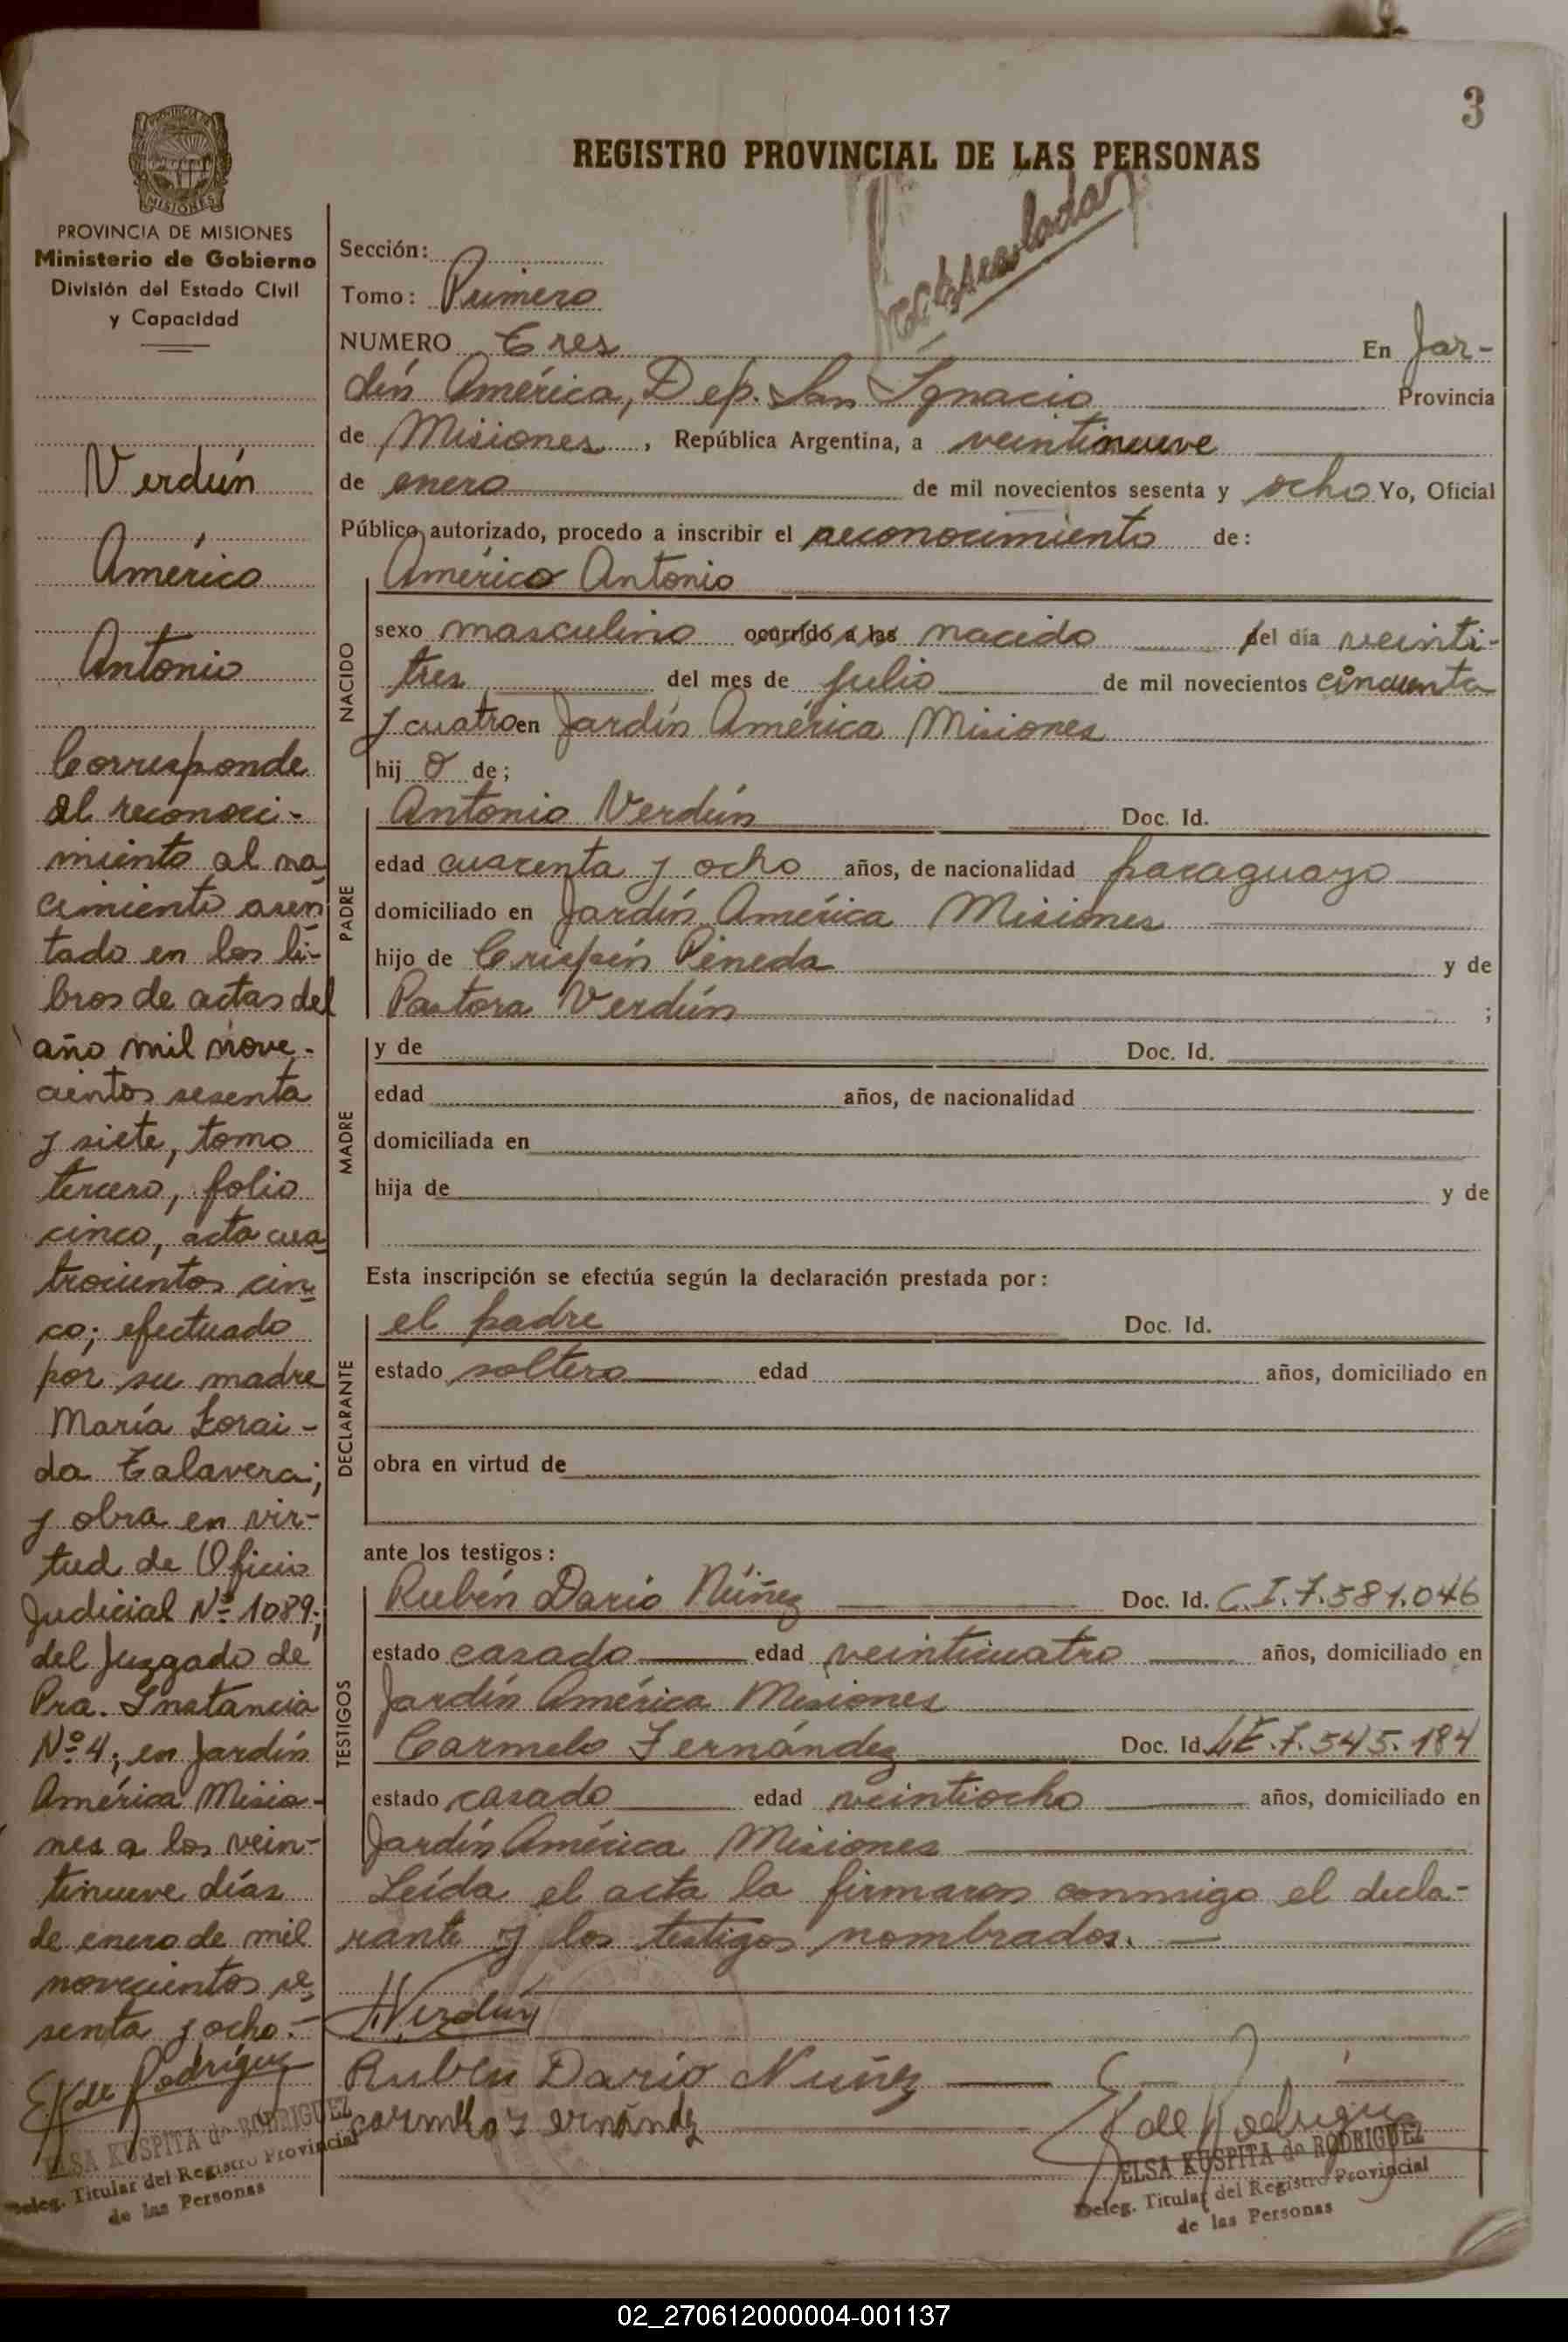 3
REGISTRO PROVINCIAL DE LAS PERSONAS
PROVINCIA DE MISIONES
Ministerio de Gobierno
División del Estado Civil
y Capacidad
Verdún
Américo
Antonio
Corresponde
al reconoci-
miento al na
cimiento asen
tado en los li-
bros de actas del
año mil nove-
cientos sesenta
y siete, tomo
tercero, folio
cinco, acta cua
trocientos cin
co; efectuado
por su madre
María Zorai-
da Talavera;
y obra en vir-
tud de Oficio
Judicial Nº 1089;
del Juzgado de
Pra. Instancia
Nº 4; en Jardín
América Misio-
nes a los vein-
tinueve días
de enero de mil
novecientos se
senta y ocho.-
E K de Rodríguez
ELSA KUSPITA de RODRIGUEZ
Deleg. Titular del Registro Provincial
de las Personas
Sección:
Tomo: Primero
NUMERO Tres En Jar-
dín América, Dep. San Ignacio Provincia
de Misiones, República Argentina, a veintinueve
de enero de mil novecientos sesenta y ocho Yo, Oficial
Público autorizado, procedo a inscribir el reconocimiento de:
NACIDO
Américo Antonio
sexo masculino ocurrido a las nacido del día veinti-
tres del mes de julio de mil novecientos cincuenta
y cuatro en Jardín América Misiones
hijo de;
PADRE
Antonio Verdún Doc. Id.
edad cuarenta y ocho años, de nacionalidad paraguayo
domiciliado en Jardín América Misiones
hijo de Crispín Pineda y de
Pastora Verdún ;
MADRE
y de Doc. Id.
edad años, de nacionalidad
domiciliada en
hija de y de
Esta inscripción se efectúa según la declaración prestada por:
DECLARANTE
el padre Doc. Id.
estado soltero edad años, domiciliado en
obra en virtud de
ante los testigos:
TESTIGOS
Rubén Darío Núñez Doc. Id. C.I.7.581.046
estado casado edad veinticuatro años, domiciliado en
Jardín América Misiones
Carmelo Fernández Doc. Id. LE.7.545.184
estado casado edad veintiocho años, domiciliado en
Jardín América Misiones
Leída el acta la firmaron conmigo el decla-
rante y los testigos nombrados.-
AVerdún
Ruben Dario Nuñez
carmelo Fernández
E K de Rodríguez
ELSA KUSPITA de RODRIGUEZ
Deleg. Titular del Registro Provincial
de las Personas
02_270612000004-001137